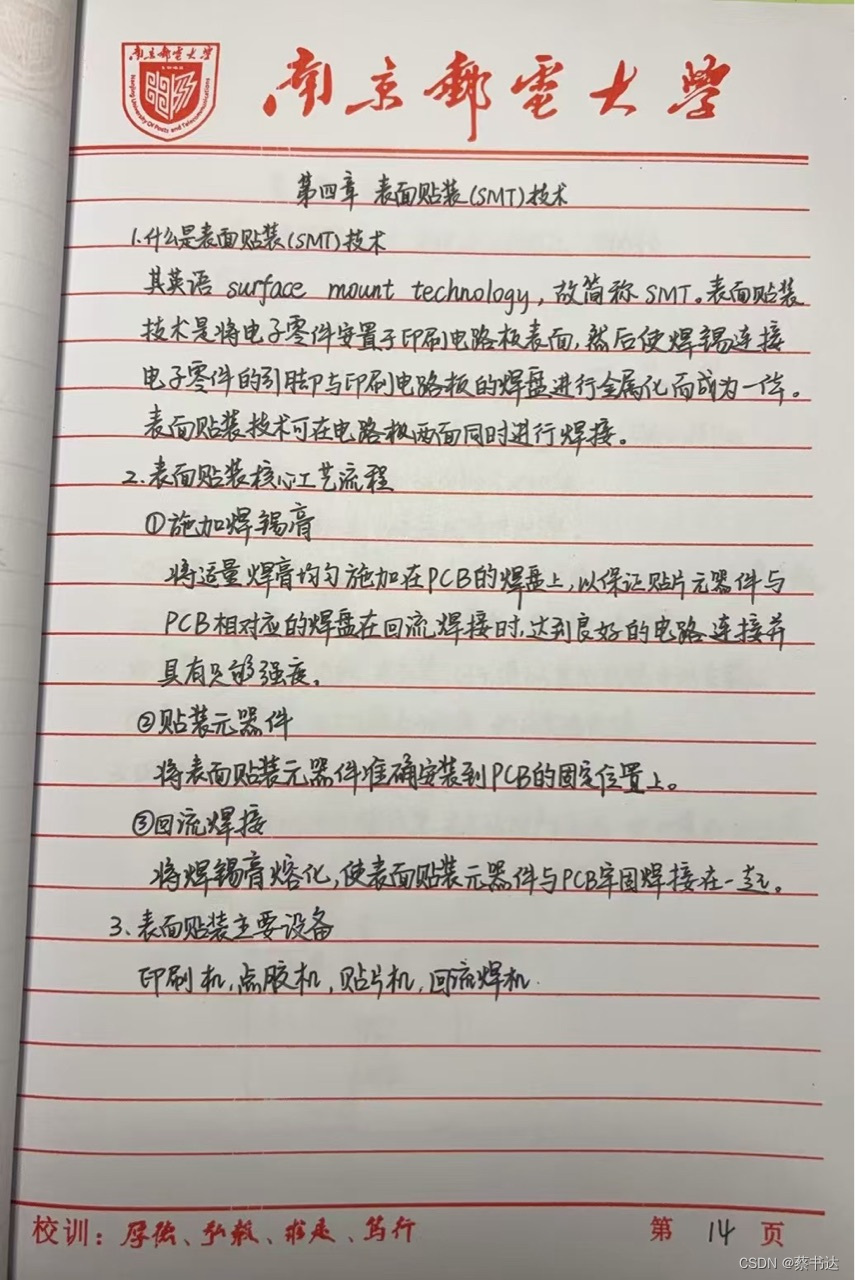 南京邮电大学
Nanjing University Of Posts and Telecommunications
南京郵電大學
第四章 表面贴装(SMT)技术
1.什么是表面贴装(SMT)技术
其英语 surface mount technology,故简称SMT。表面贴装
技术是将电子零件安置于印刷电路板表面,然后使焊锡连接
电子零件的引脚与印刷电路板的焊盘进行金属化而成为一体。
表面贴装技术可在电路板两面同时进行焊接。
2.表面贴装核心工艺流程
①施加焊锡膏
将适量焊膏均匀施加在PCB的焊盘上,以保证贴片元器件与
PCB相对应的焊盘在回流焊接时,达到良好的电路连接并
具有足够强度。
②贴装元器件
将表面贴装元器件准确安装到PCB的固定位置上。
③回流焊接
将焊锡膏熔化,使表面贴装元器件与PCB牢固焊接在一起。
3.表面贴装主要设备
印刷机,点胶机,贴片机,回流焊机.
校训:厚德、弘毅、求是、笃行
第 14 页
CSDN @蔡书达